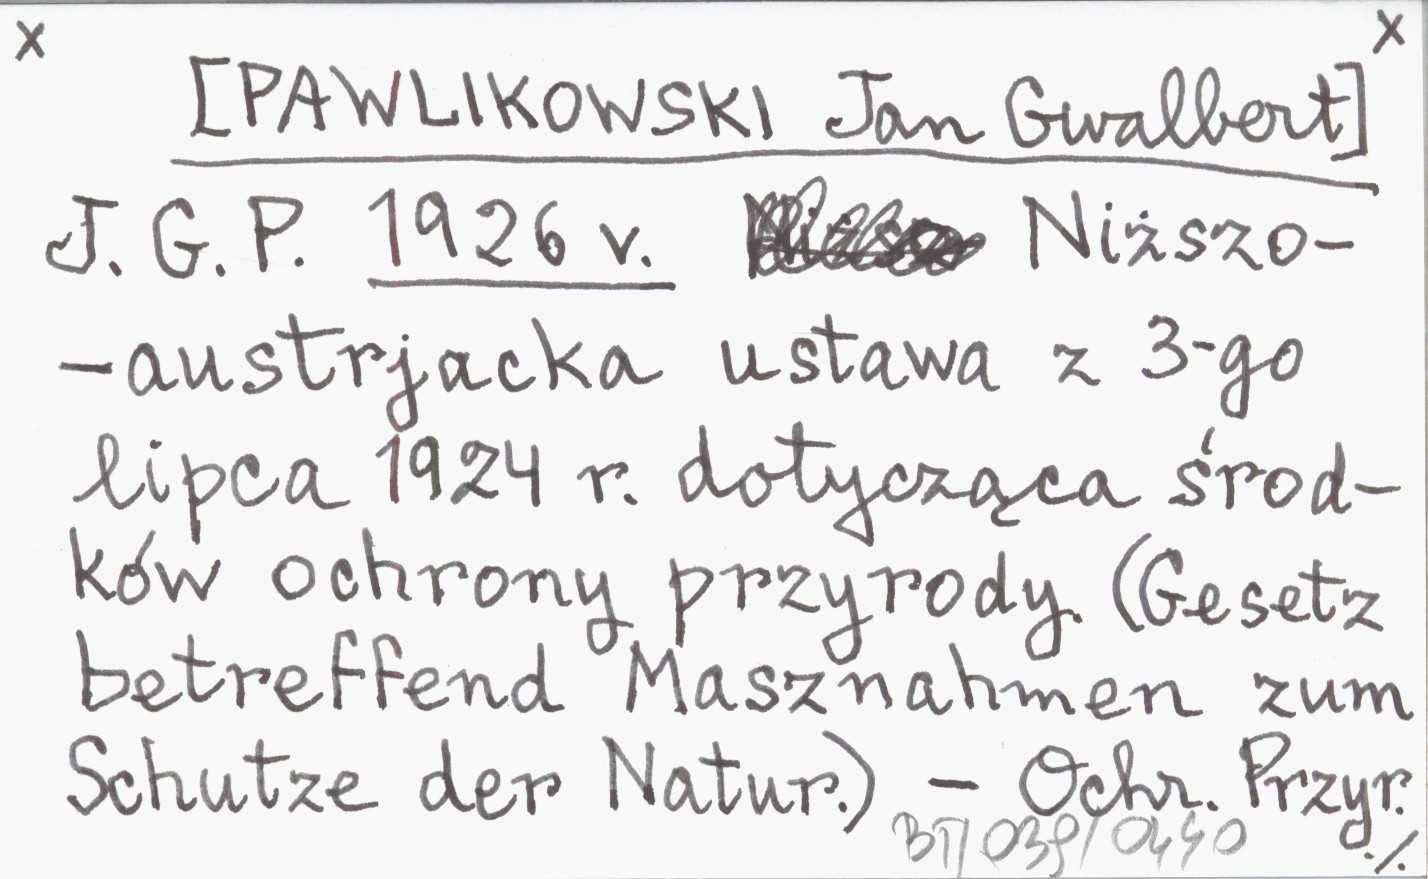 x x
[PAWLIKOWSKI Jan Gwalbert]
J. G. P. 1926 v. Niższo-
-austrjacka ustawa z 3-go
lipca 1924 r. dotycząca środ-
ków ochrony przyrody. (Gesetz
betreffend Masznahmen zum
Schutze der Natur.) - Ochr. Przyr.
BT/039/0440
./.